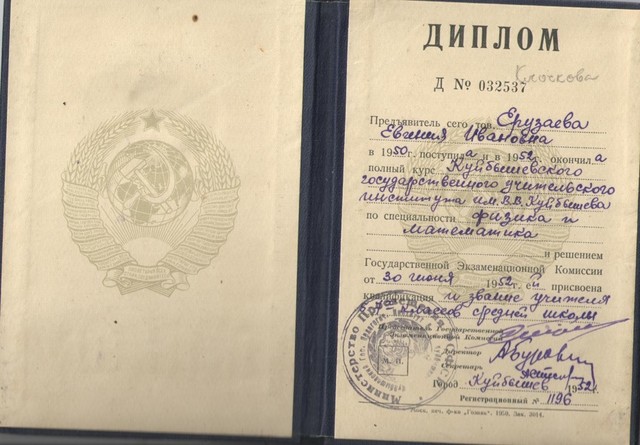 ДИПЛОМ
Клочкова
Д № 032537
Предъявитель сего тов. Ерузаева
Евгения Ивановна
в 1950 г. поступила и в 1952 г. окончила
полный курс Куйбышевского
государственного учительского
института им. В.В. Куйбышева
по специальности физика и
математика
и решением
Государственной Экзаменационной Комиссии
от 30 июня 1952 г. ей присвоена
квалификация и звание учителя
классов средней школы
Председатель Государственной
Экзаменационной Комиссии
Директор
Секретарь
М. П.
Город Куйбышев 1952 г.
Регистрационный № 1196
Министерство Просвещения